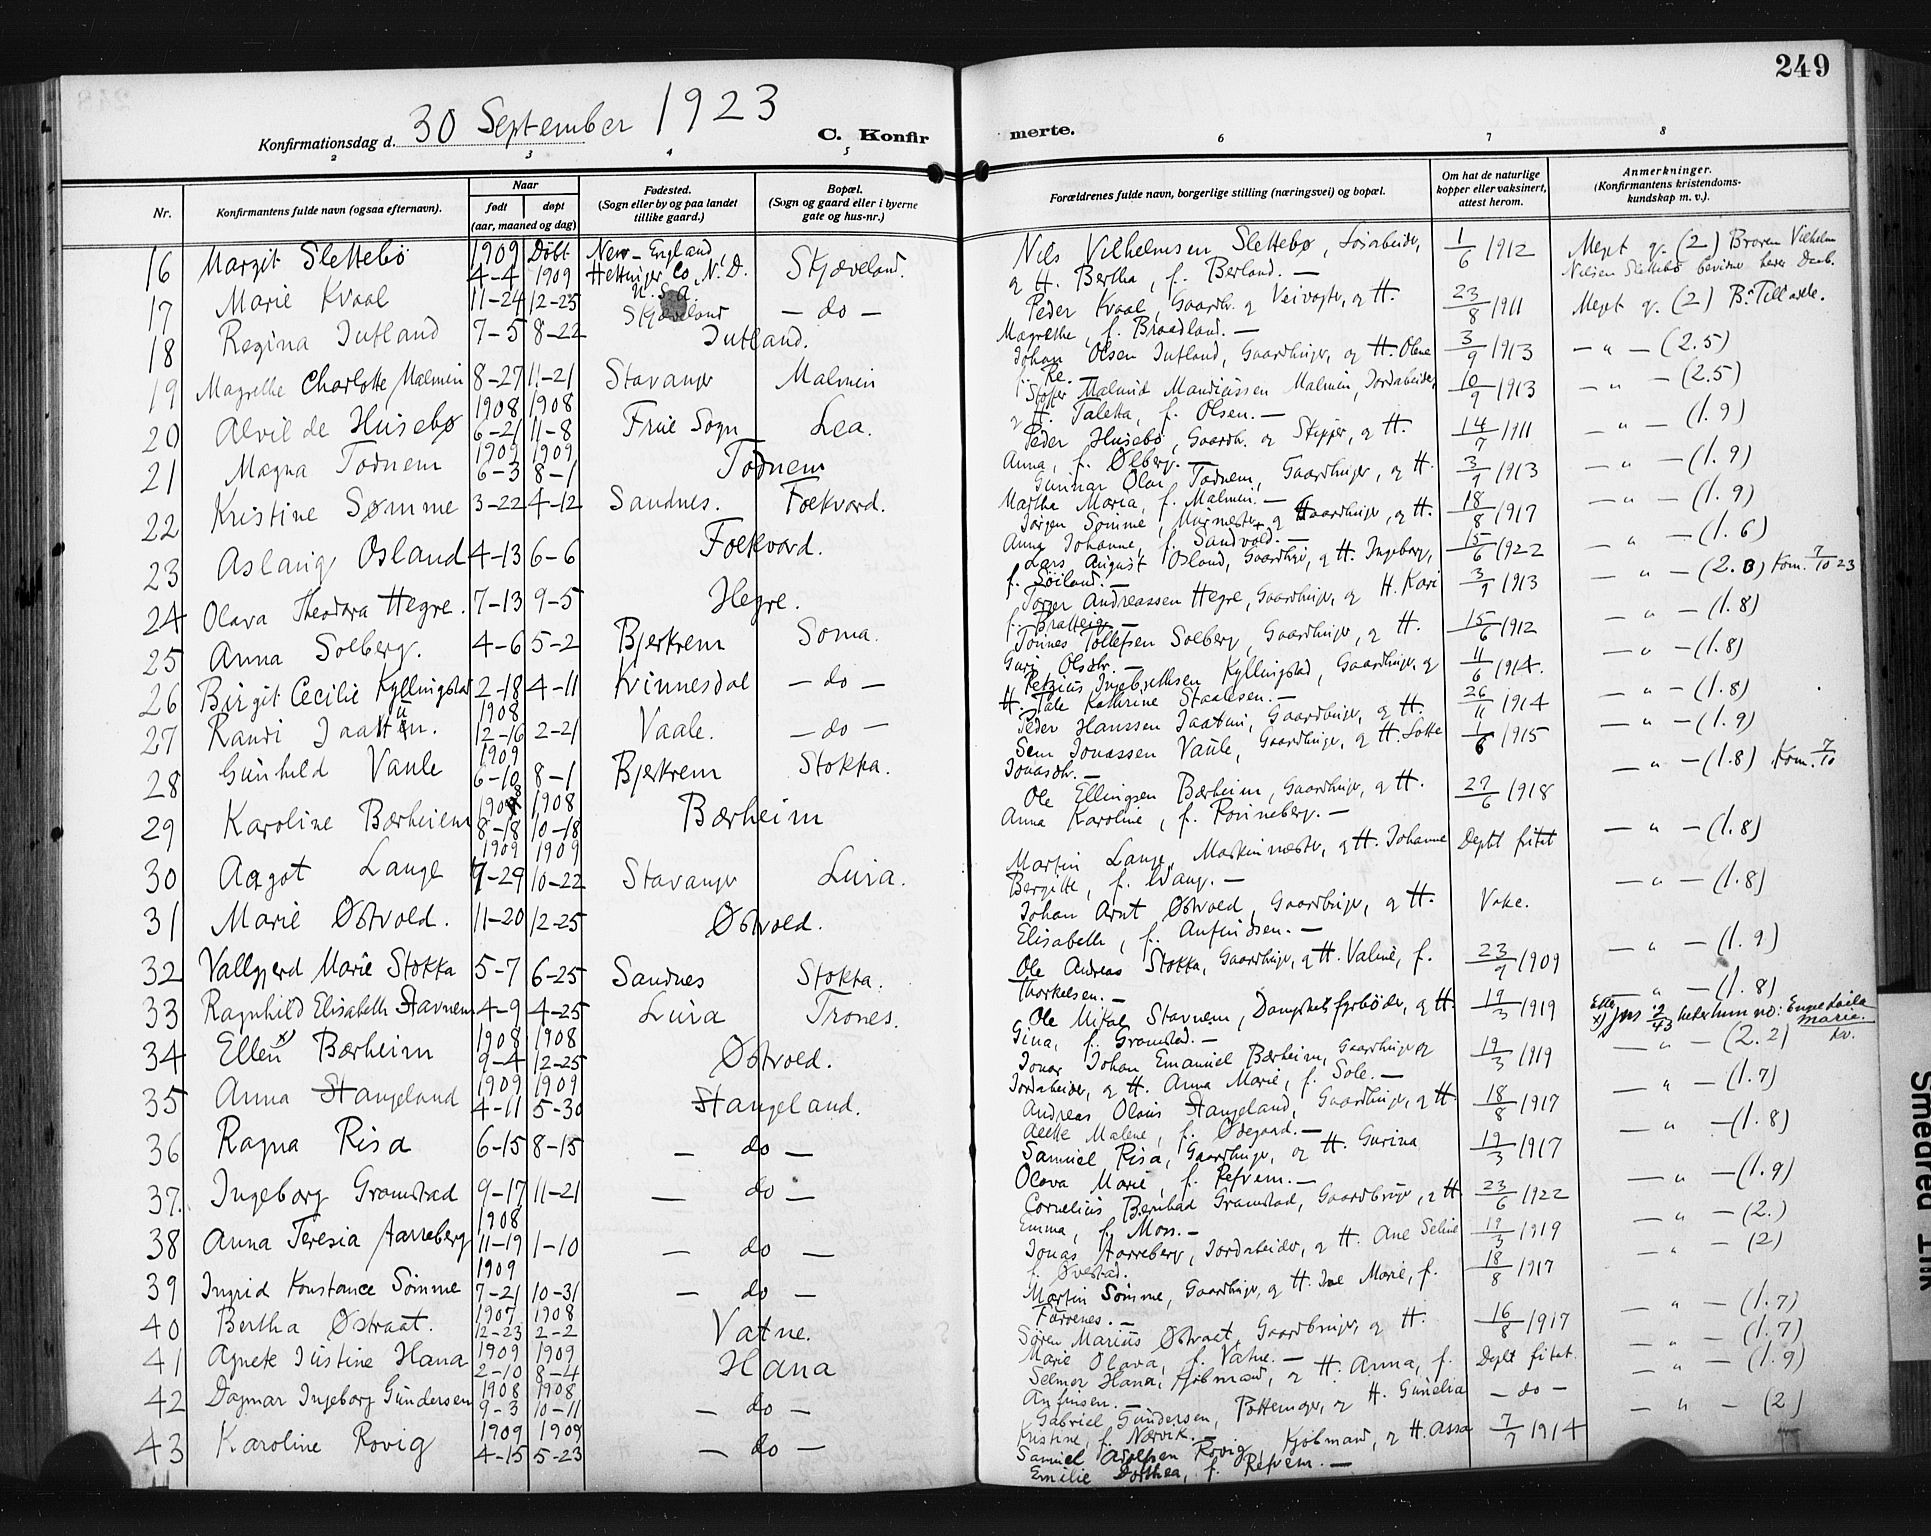 249
Konfirmationsdag d. 30 September 1923 C. Konfirmerte.
2 3 4 5 6 7 8
Nr. Konfirmantens fulde navn (ogsaa efternavn). Naar født døpt (aar, maaned og dag) Fødested. (Sogn eller by og paa landet tillike gaard.) Bopæl. (Sogn og gaard eller i byerne gate og hus-nr.) Forældrenes fulde navn, borgerlige stilling (næringsvei) og bopæl. Om hat de naturlige kopper eller vaksinert, attest herom. Anmerkninger. (Konfirmantens kristendomskundskap m. v.).
16 Margit Slettebø 1909 4-4 Døbt 1909 New-England, Hettinger Co, N. D. U. S. A. Skjæveland. Nils Vilhelmsen Slettebø, Jordarbeider, og H. Bertha, f. Berland. — 1/6 1912 Meget g. (2) Broren Vilhelm Nilsen Slettebø bevidner hendes Daab.
17 Marie Kvaal 11-24 12-25 Skjæveland — do — Peder Kvaal, Gaardb. og Veivogter, og H. Magrethe, f. Braadland. — 23/8 1911 Meget g. (2)
18 Regina Jutland 7-5 8-22 Jutland. Johan Olsen Jutland, Gaardbruger, og H. Olene f. Re. — 3/9 1913 — " — (2.5)
19 Magrethe Charlotte Malmin 8-27 11-21 Stavanger Malmin Malmin, Jordarbeider, og H. Taletta, f. Olsen. — 10/9 1913 — " — (2.5)
20 Alvilde Husebø 1908 6-21 1908 11-8 Frue Sogn Lea. Peder Husebø, Gaardb. og Skipper, og H. Anna, f. Ølberg. — 14/7 1911 — " — (1.9)
21 Magna Todnem 1909 6-3 1909 8-1 Todnem Gunnar Olai Todnem, Gaardbruger, og H. Marthe Maria, f. Malmin. — 3/9 1913 — " — (1.9)
22 Kristine Sømme 3-22 4-12 Sandnes. Foekvord. Jørgen Sømme, Murmester og Gaardbruger, og H. Anna Johanne, f. Sandvold. — 18/8 1917 — " — (1.9)
23 Aslaug Osland 4-13 6-6 Foekvord. Lars August Osland, Gaardbruger, og H. Ingeborg, f. Søiland. — 15/6 1922 — " — (1.6)
24 Olava Theodora Hegre. 7-13 9-5 Hegre. Torger Andreassen Hegre, Gaardbruger, og H. Kari f. Bratteig. — 3/9 1913 — " — (2.8) Kom. 7/10 23
25 Anna Solberg. 4-6 5-2 Bjerkrem Soma. Tønnes Tollefsen Solberg, Gaardbruger, og H. Guri Olsdtr. — 15/6 1912 — " — (1.8)
26 Birgit Cecilie Kyllingstad 2-18 4-11 Kvinnesdal — do — Petrius Ingebrethsen Kyllingstad, Gaardbruger, og H. Tale Kathrine Staalesen. — 11/6 1914. — " — (1.8)
27 Randi Jaattun. 1908 12-16 2-21 Vaale. — do — Peder Hanssen Jaatun, Gaardbruger, og H. 26/11 1914 — " — (1.8)
28 Gunhild Vaule 1909 6-10 8-1 Bjerkrem Stokka. Sem Jonassen Vaule, Gaardbruger, og H. Lotte Jonasdtr. — 1/6 1915 — " — (1.9)
29 Karoline Bærheiem 1908 8-18 1908 10-18 Bærheim Ole Ellingsen Bærheim, Gaardbruger, og H. Anna Karoline, f. Rønneberg. — 27/6 1918 — " — (1.8) Kom. 7/10
30 Aagot Lange 1909 7-29 1909 10-22 Stavanger Lura. Martin Lange, Maskinmester, og H. Johanne Bergitte, f. Wang. — Deptt fritet — " — (1.8)
31 Marie Østvold. 11-20 12-25 Østvold. Johan Arnt Østvold, Gaardbruger, og H. Elisabeth, f. Anfindsen. — Vake. — " — (1.8)
32 Vallgjerd Marie Stokka 5-7 6-25 Sandnes Stokka. Ole Andreas Stokka, Gaardbruger, og H. Valine, f. Thorkelsen. — 23/9 1909 — " — (1.9)
33 Ragnhild Elisabeth Stavnem 4-9 4-25 Lura Trones. Ole Mikal Stavnem, Dampskibsfyrbøder, og H. Gina, f. Gramstad. — 19/3 1919 — " — (1.8)
34 Ellen x) Bærheim 1908 9-4 1908 12-25 Østvold. Jonar Johan Emanuel Bærheim, Gaardbruger og Jordarbeider, og H. Anna Marie, f. Sole. — 19/3 1919 x) jns 2/43 heter hun no: Marie. — " — (2.2)
35 Anna Stangeland 1909 4-11 1909 5-30 Stangeland. Andreas Olaus Stangeland, Gaardbruger, og H. Alette Malene, f. Ødegaard. — 18/8 1917 — " — (1.7)
36 Ragna Risa 6-15 8-15 — do — Samuel Risa, Gaardbruger, og H. Gurina Olava Marie, f. Refvem. — 19/3 1917 — " — (1.8)
37. Ingeborg Gramstad 9-17 11-21 — do — Cornelius Bernhad Gramstad, Gaardbruger, og H. Emma, f. Moss. — 23/6 1922 — " — (1.9)
38 Anna Teresia Aarreberg 1908 11-19 1-10 — do — Jonas Aarreberg, Jordarbeider, og H. Ane Seline f. Øvestad. 19/3 1919 — " — (2.)
39 Ingrid Konstance Sømme 1909 7-21 10-31 — do — Martin Sømme, Gaardbruger, og H. Ine Marie, f. Førrenes. — 18/8 1917 — " — (2)
40 Bertha Østraat. 1907 12-23 1908 2-2 Vatne. Søren Marius Østraat, Gaardbruger, og H. Marie Olava, f. Vatne. — 16/8 1917 — " — (1.7)
41 Agnete Justine Hana 1909 2-10 1909 8-4 Hana Selmer Hana, Kjøbmand, og H. Anna, f. Anfinsen. — Deptt fritet. — " — (1.7)
42 Dagmar Ingeborg Gundersen 1908 9-3 1908 10-11 — do — Gabriel Gundersen, Pottemager, og H. Gunelia Kristine, f. Nærvik. — — do — — " — (1.9)
43 Karoline Rovig 1909 4-15 1909 5-23 — do — Samuel Adolfsen Rovig, Kjøbmand, og H. Assa Emilie Dorthea, f. Refvem. — 7/7 1914 — " — (2)
Smeared Ink